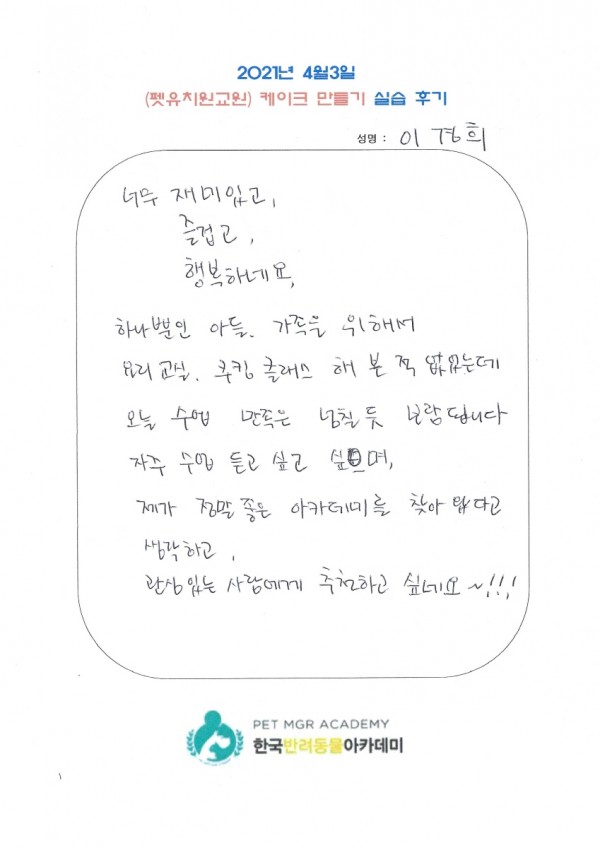 2021년 4월3일
(펫유치원교원) 케이크 만들기 실습 후기
성명 : 이경희
너무 재미있고,
즐겁고,
행복하네요,
하나뿐인 아들. 가족을 위해서
요리교실. 쿠킹클래스 해 본 적 없었는데
오늘 수업 만족은 넘칠 듯 보람됩니다
자주 수업 듣고 싶고 싶으며,
제가 정말 좋은 아카데미를 찾아 왔다고
생각하고,
관심있는 사람에게 추천하고 싶네요~!!!
PET MGR ACADEMY
한국반려동물아카데미